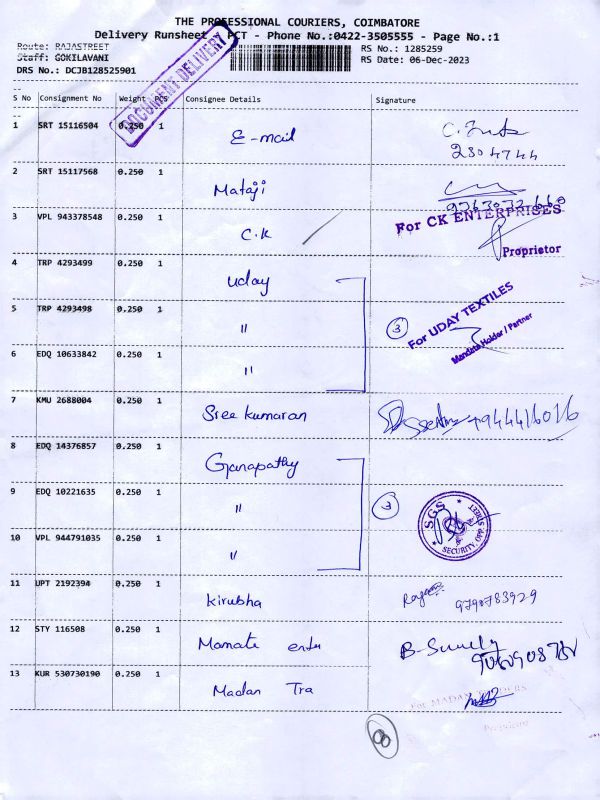 THE PROFESSIONAL COURIERS, COIMBATORE
Delivery Runsheet - PCT - Phone No.:0422-3505555 - Page No.:1
Route: RAJASTREET
Staff: GOKILAVANI
DRS No.: DCJB128525901
RS No.: 1285259
RS Date: 06-Dec-2023
DOCUMENT DELIVERY
S No Consignment No Weight PCS Consignee Details Signature
1 SRT 15116504 0.250 1 E-mail
2304744
2 SRT 15117568 0.250 1 Mataji
3 VPL 943378548 0.250 1 C.K
For CK ENTERPRISES
Proprietor
4 TRP 4293499 0.250 1 Uday
5 TRP 4293498 0.250 1 "
3
For UDAY TEXTILES
Mandate Holder / Partner
6 EDQ 10633842 0.250 1 "
7 KMU 2688004 0.250 1 Sree Kumaran
8 EDQ 14376857 0.250 1 Ganapathy
9 EDQ 10221635 0.250 1 "
3
SGS
SECURITY, OPP. STREET
10 VPL 944791035 0.250 1 "
11 UPT 2192394 0.250 1 Kirubha
9790783929
12 STY 116508 0.250 1 Mamate enter
13 KUR 530730190 0.250 1 Madan Tra
For MADAN TRADERS
Proprietor